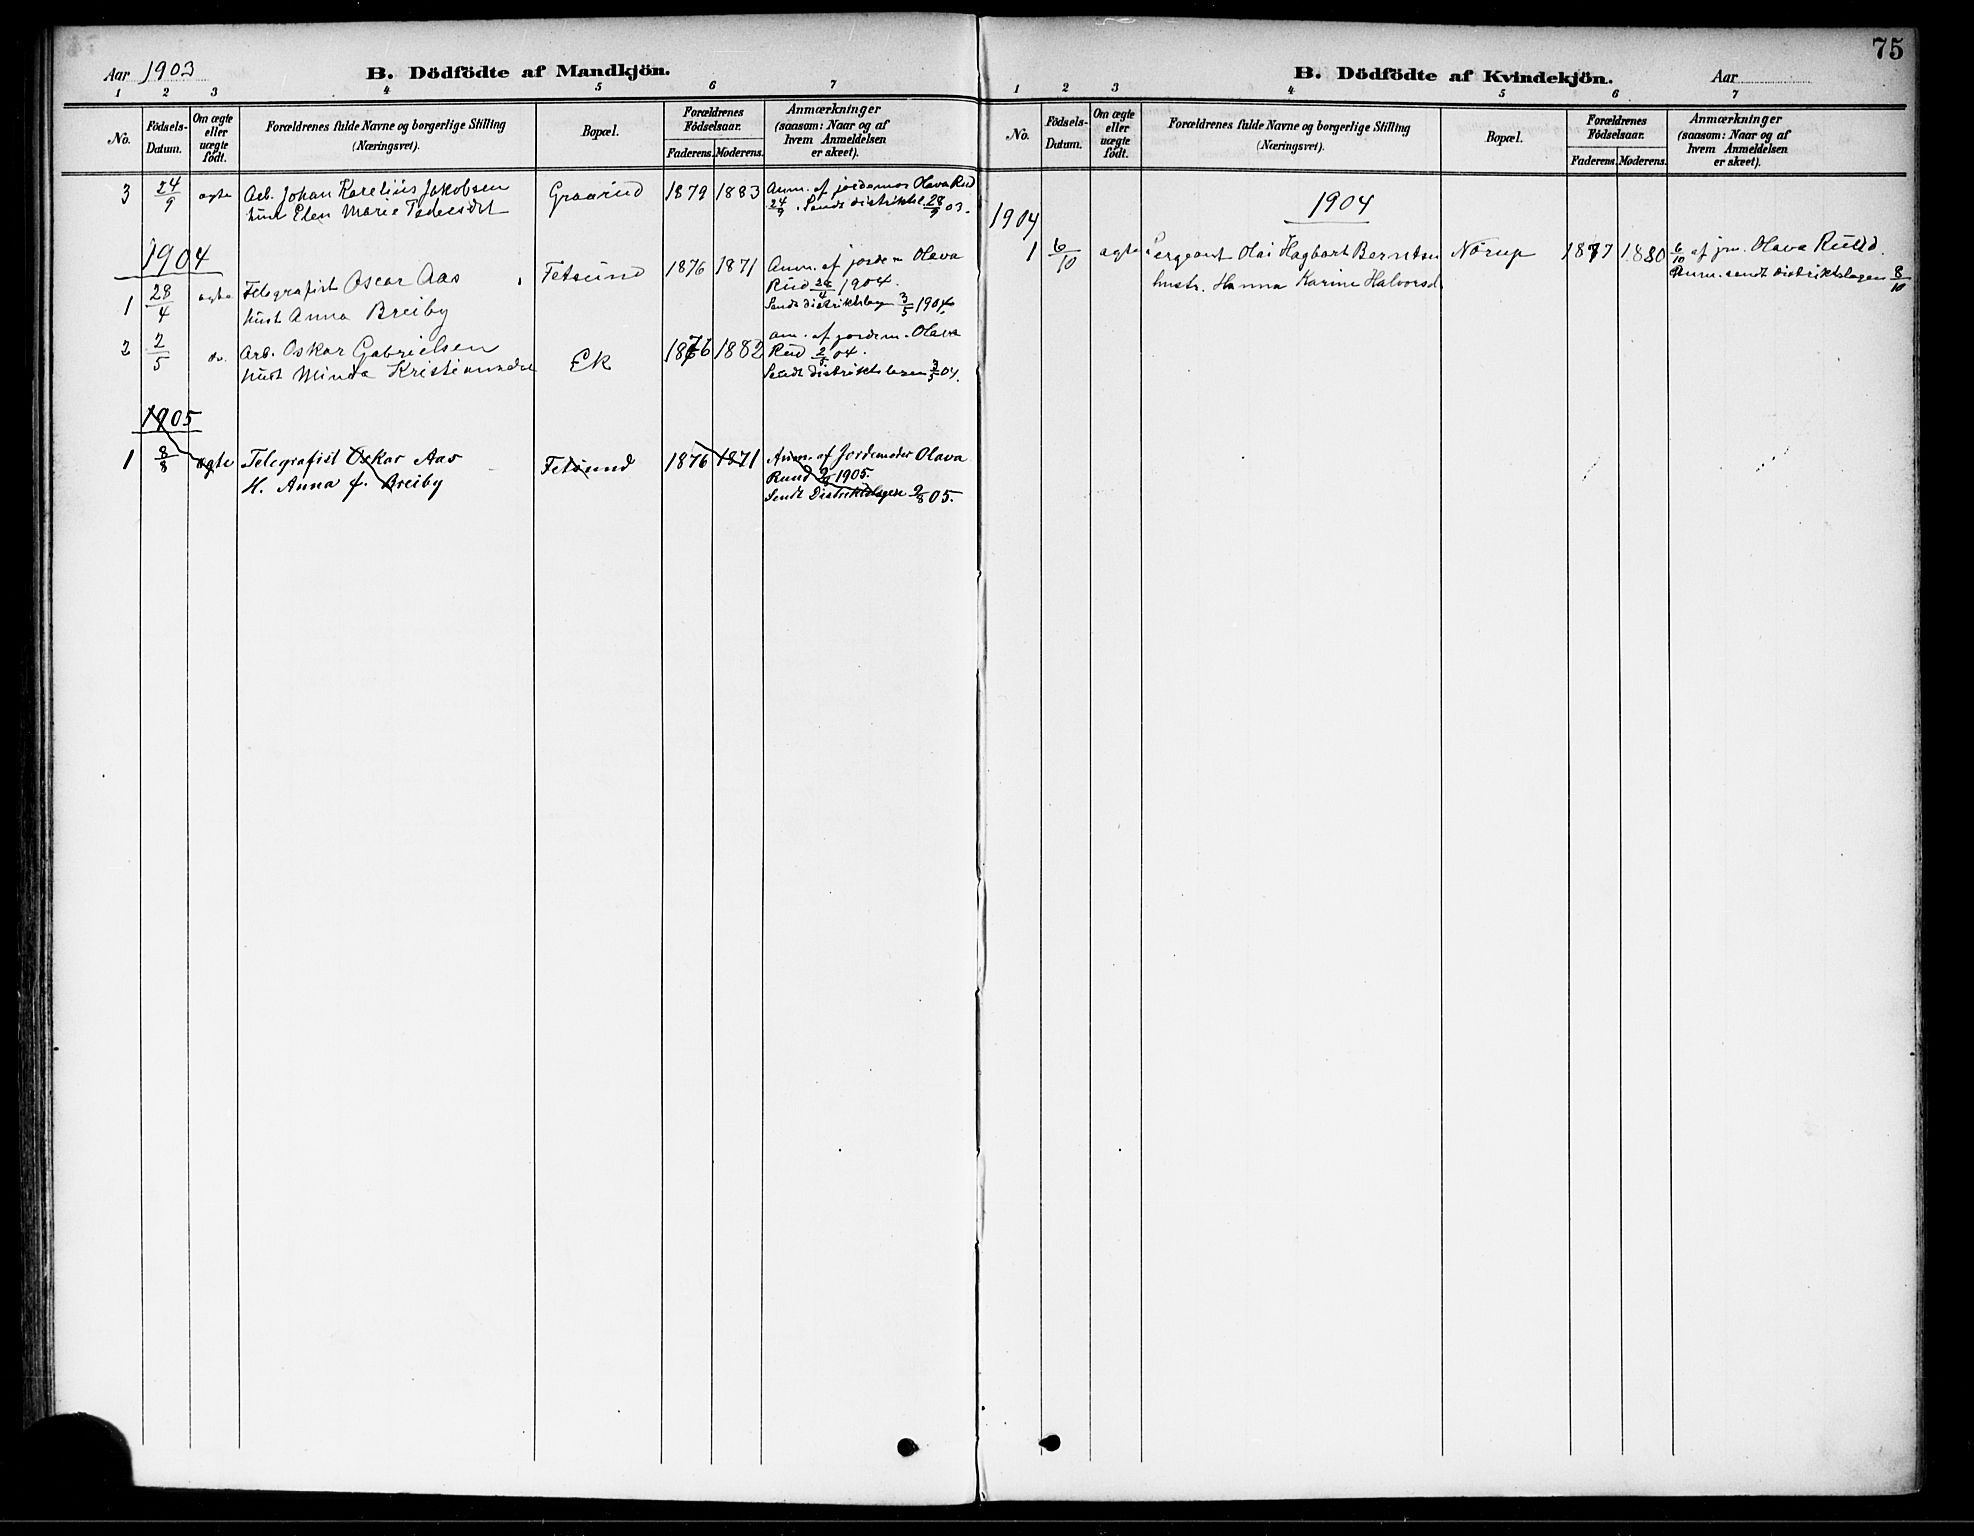 Aar 1903
B. Dödfödte af Mandkjön.
1 2 3 4 5 6 7
No.
Födsels-Datum.
Om ægte eller uægte født.
Forældrenes fulde Navne og borgerlige Stilling (Næringsvei).
Bopæl.
Forældrenes Födselsaar.
Faderens. Moderens.
Anmærkninger (saasom: Naar og af hvem Anmeldelsen er skeet).
3 24/9 ægte Arb. Johan Karelius Jakobsen Graarud 1879 1883 Anm. af jordemor Olava Rud
hust Elen Marie 24/9. Sendt distriktsl. 28/9 03.
1904
1 28/4 ægte Telegrafist Oscar Aas Fetsund 1876 1871 Anm. af jordem Olava
hust Anna Breiby Rud 28/4 1904.
Sendt distriktslag 3/5 1904
2 2/5 do. Arb. Oskar Gabrielsen Ek 1876 1882 am. af jordem. Olava
hust Minda Rud 2/5 04.
Sendt distriktslagen 3/5 04.
1905
1 8/8 ægte Telegrafist Oskar Aas Fetsund 1876 1871 Anm. af Jordemoder Olava
H. Anna f. Breiby Ruud 9/8 1905.
Sendt Distriktslagen 9/8 05.
75
B. Dödfödte af Kvindekjön.
Aar
1 2 3 4 5 6 7
No.
Födsels-Datum.
Om ægte eller uægte födt.
Forældrenes fulde Navne og borgerlige Stilling (Næringsvei).
Bopæl.
Forældrenes Födselsaar.
Faderens. Moderens.
Anmærkninger (saasom: Naar og af hvem Anmeldelsen er skeet).
1904
1904
1 6/10 ægte Sergeant Olai Hagbart Berntsen Nörup 1877 1880 6/10 af jm. Olava Ruud.
hustr. Hanna Karine Halvorsd. Anm. sendt distriktslagen 8/10